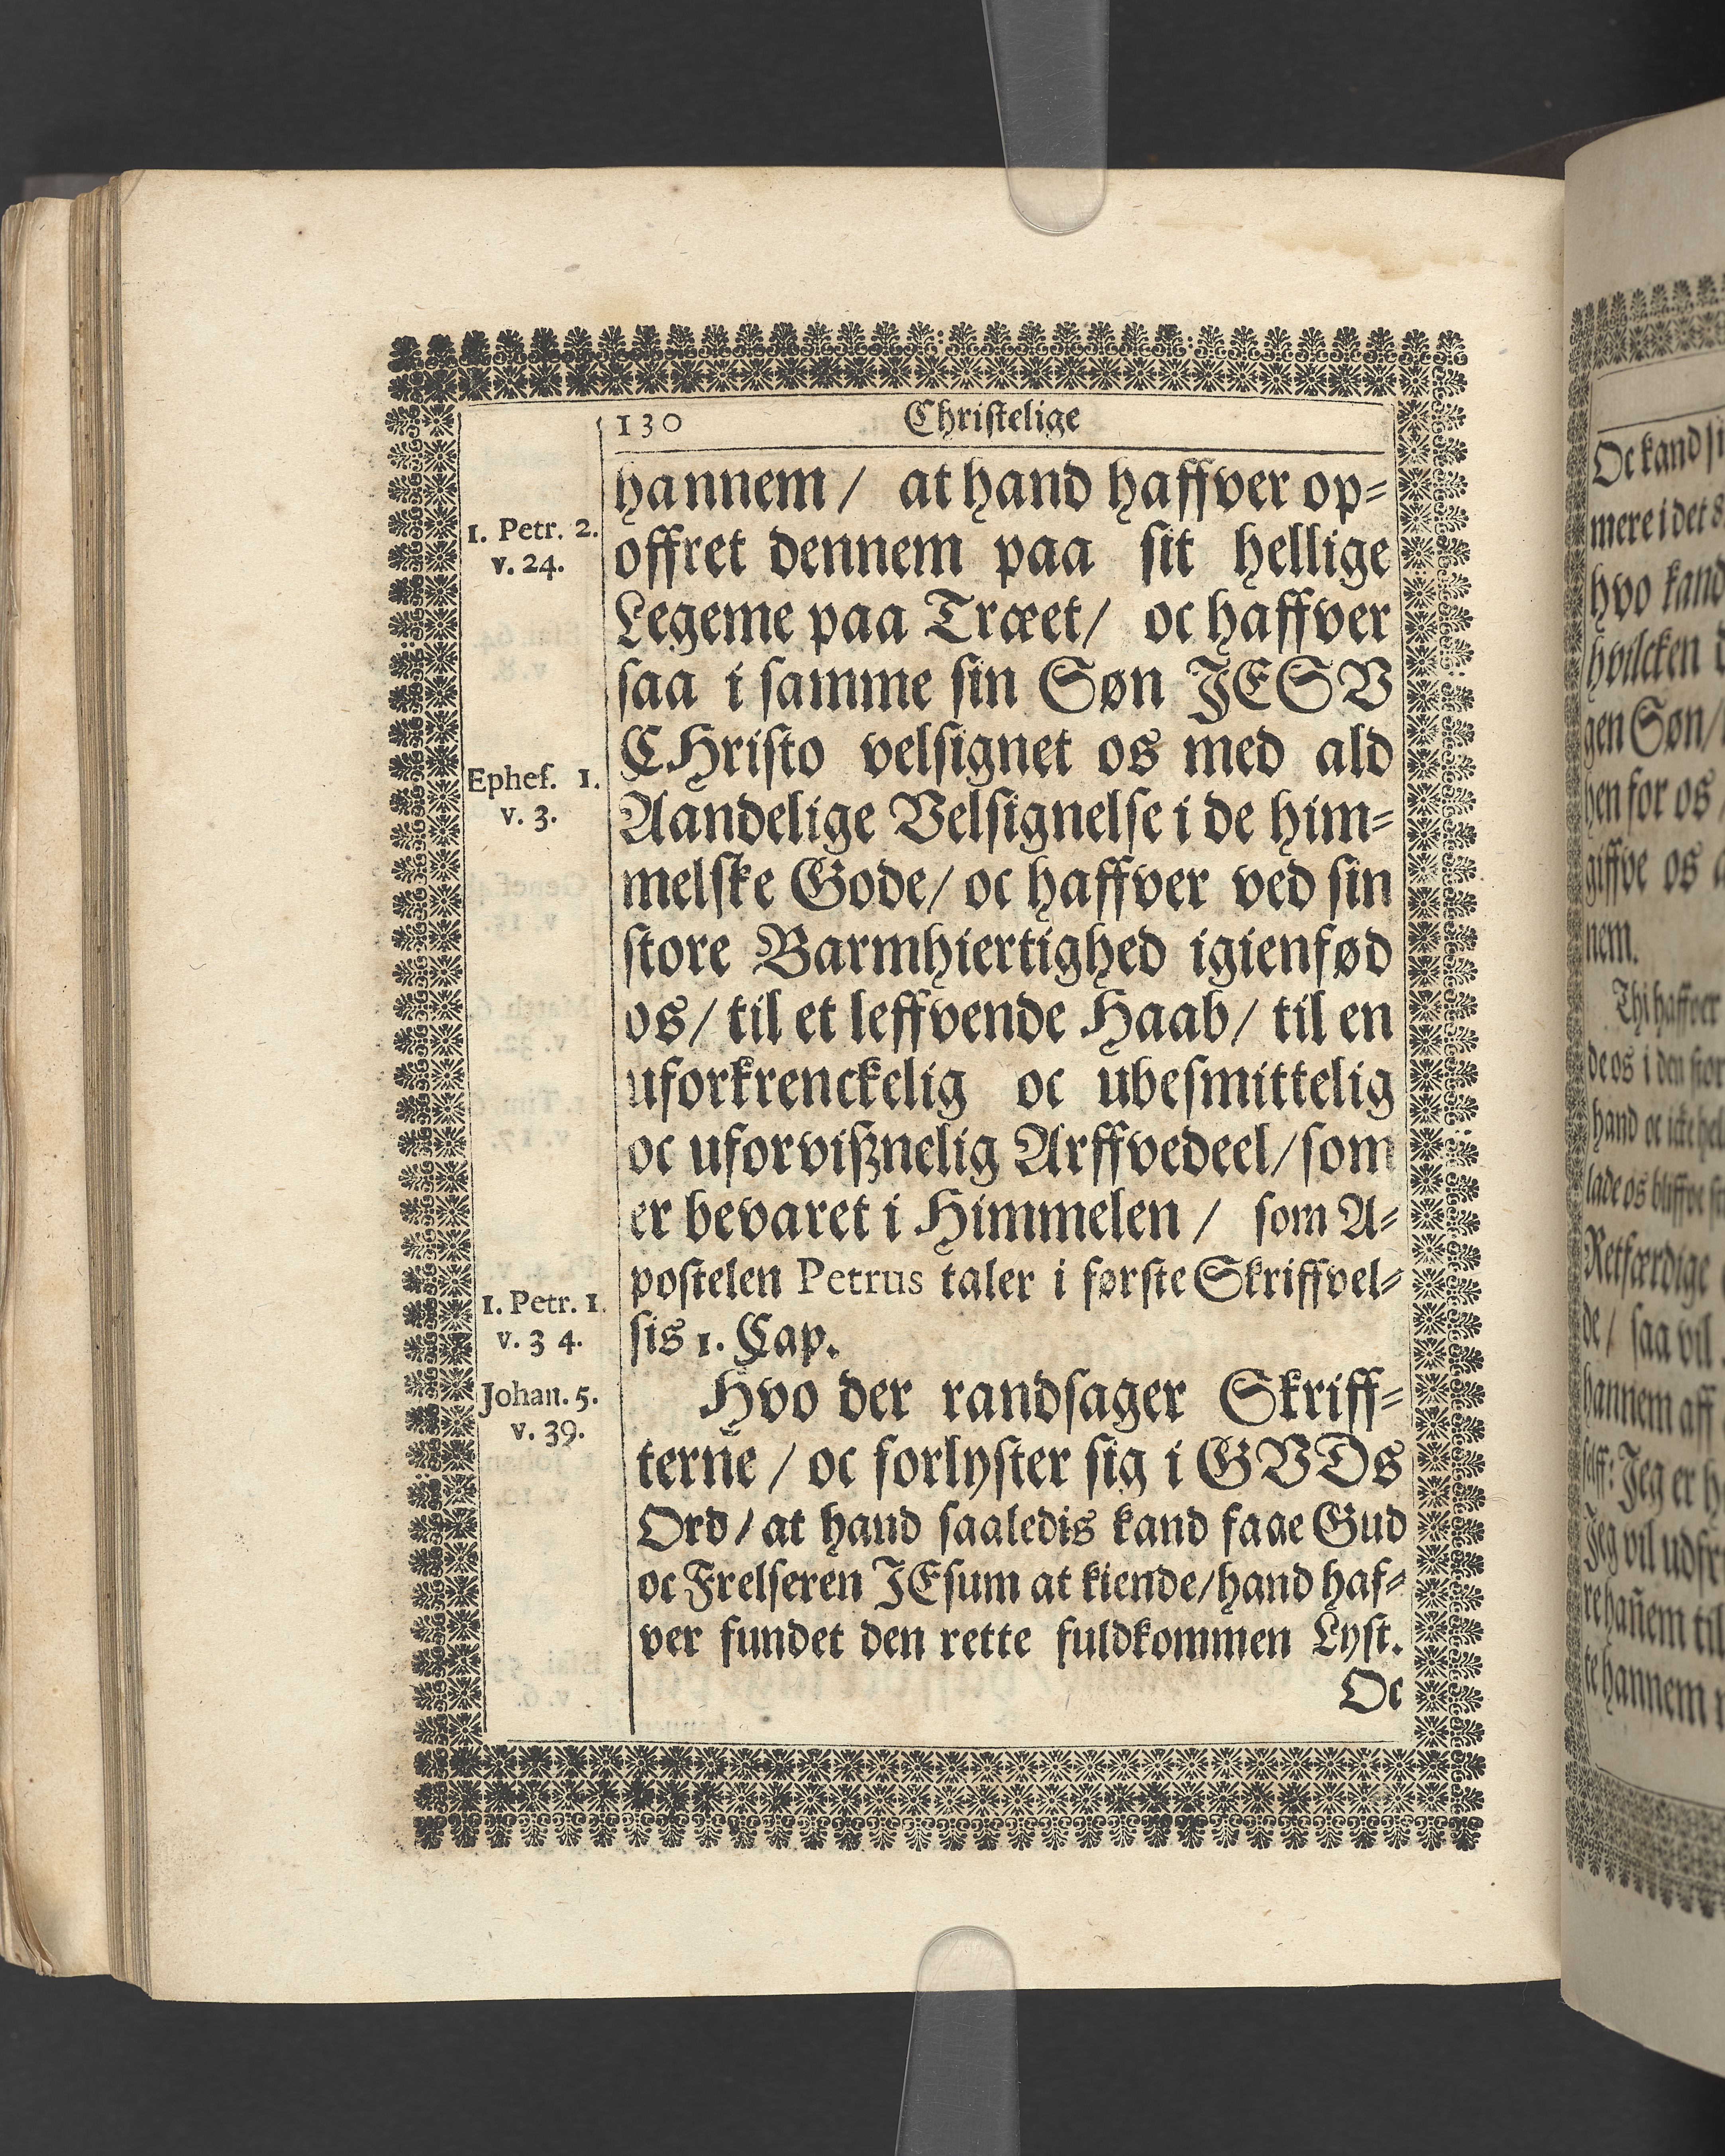 130 Christelige
hannem / at hand haffver op-
1. Petr. 2.
v. 24.
offret dennem paa sit hellige
Legeme paa Træet / oc haffver
saa i samme sin Søn JESV
CHristo velsignet os med ald
Ephes. 1.
v. 3.
Aandelige Velsignelse i de him-
melske Gode / oc haffver ved sin
store Barmhiertighed igienfød
os / til et leffvende Haab / til en
uforkrenckelig oc ubesmittelig
oc uforvißnelig Arffvedeel / som
er bevaret i Himmelen / som A-
postelen Petrus taler i første Skriffvel-
1. Petr. 1.
v. 3 4.
sis 1. Cap.
Hvo der randsager Skriff-
Johan. 5.
v. 39.
terne / oc forlyster sig i GVDs
Ord / at hand saaledis kand faae Gud
oc Frelseren JEsum at kiende / hand haf-
ver fundet den rette fuldkommen Lyst.
Oc
Oc kand
mere i det
hvo kand
hvilcken
gen Søn /
hen for os
giffve os
nem.
Thi haffver
de os i den
hand oc icke
lade os bliffve
Retfærdige
de / saa vil
hannem aff
selff: Jeg er
Jeg vil
re hañem til
te hannem